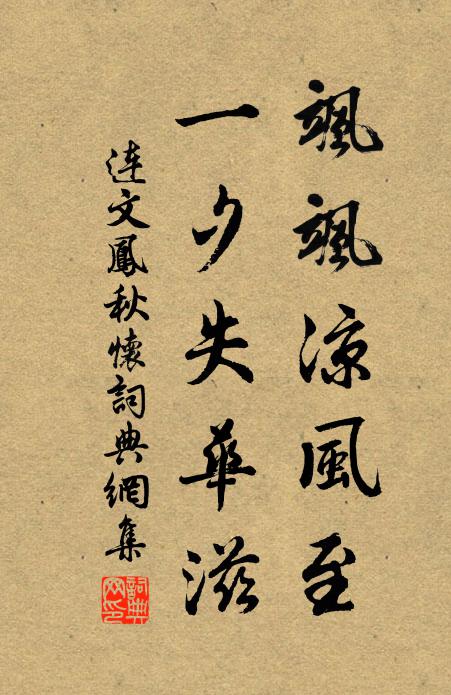 颯颯涼風至
一夕失華滋
連文鳳秋懷詞典網集
詞典網印